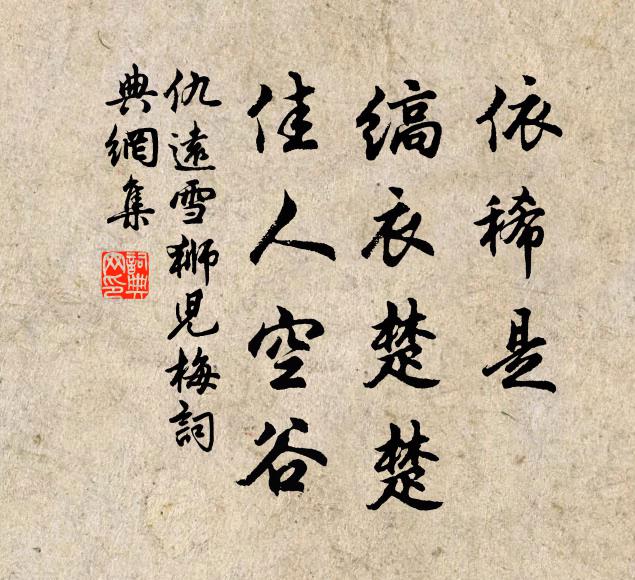 依稀是
縞衣楚楚
佳人空谷
仇遠雪獅児梅詞
典網集
詞典網印